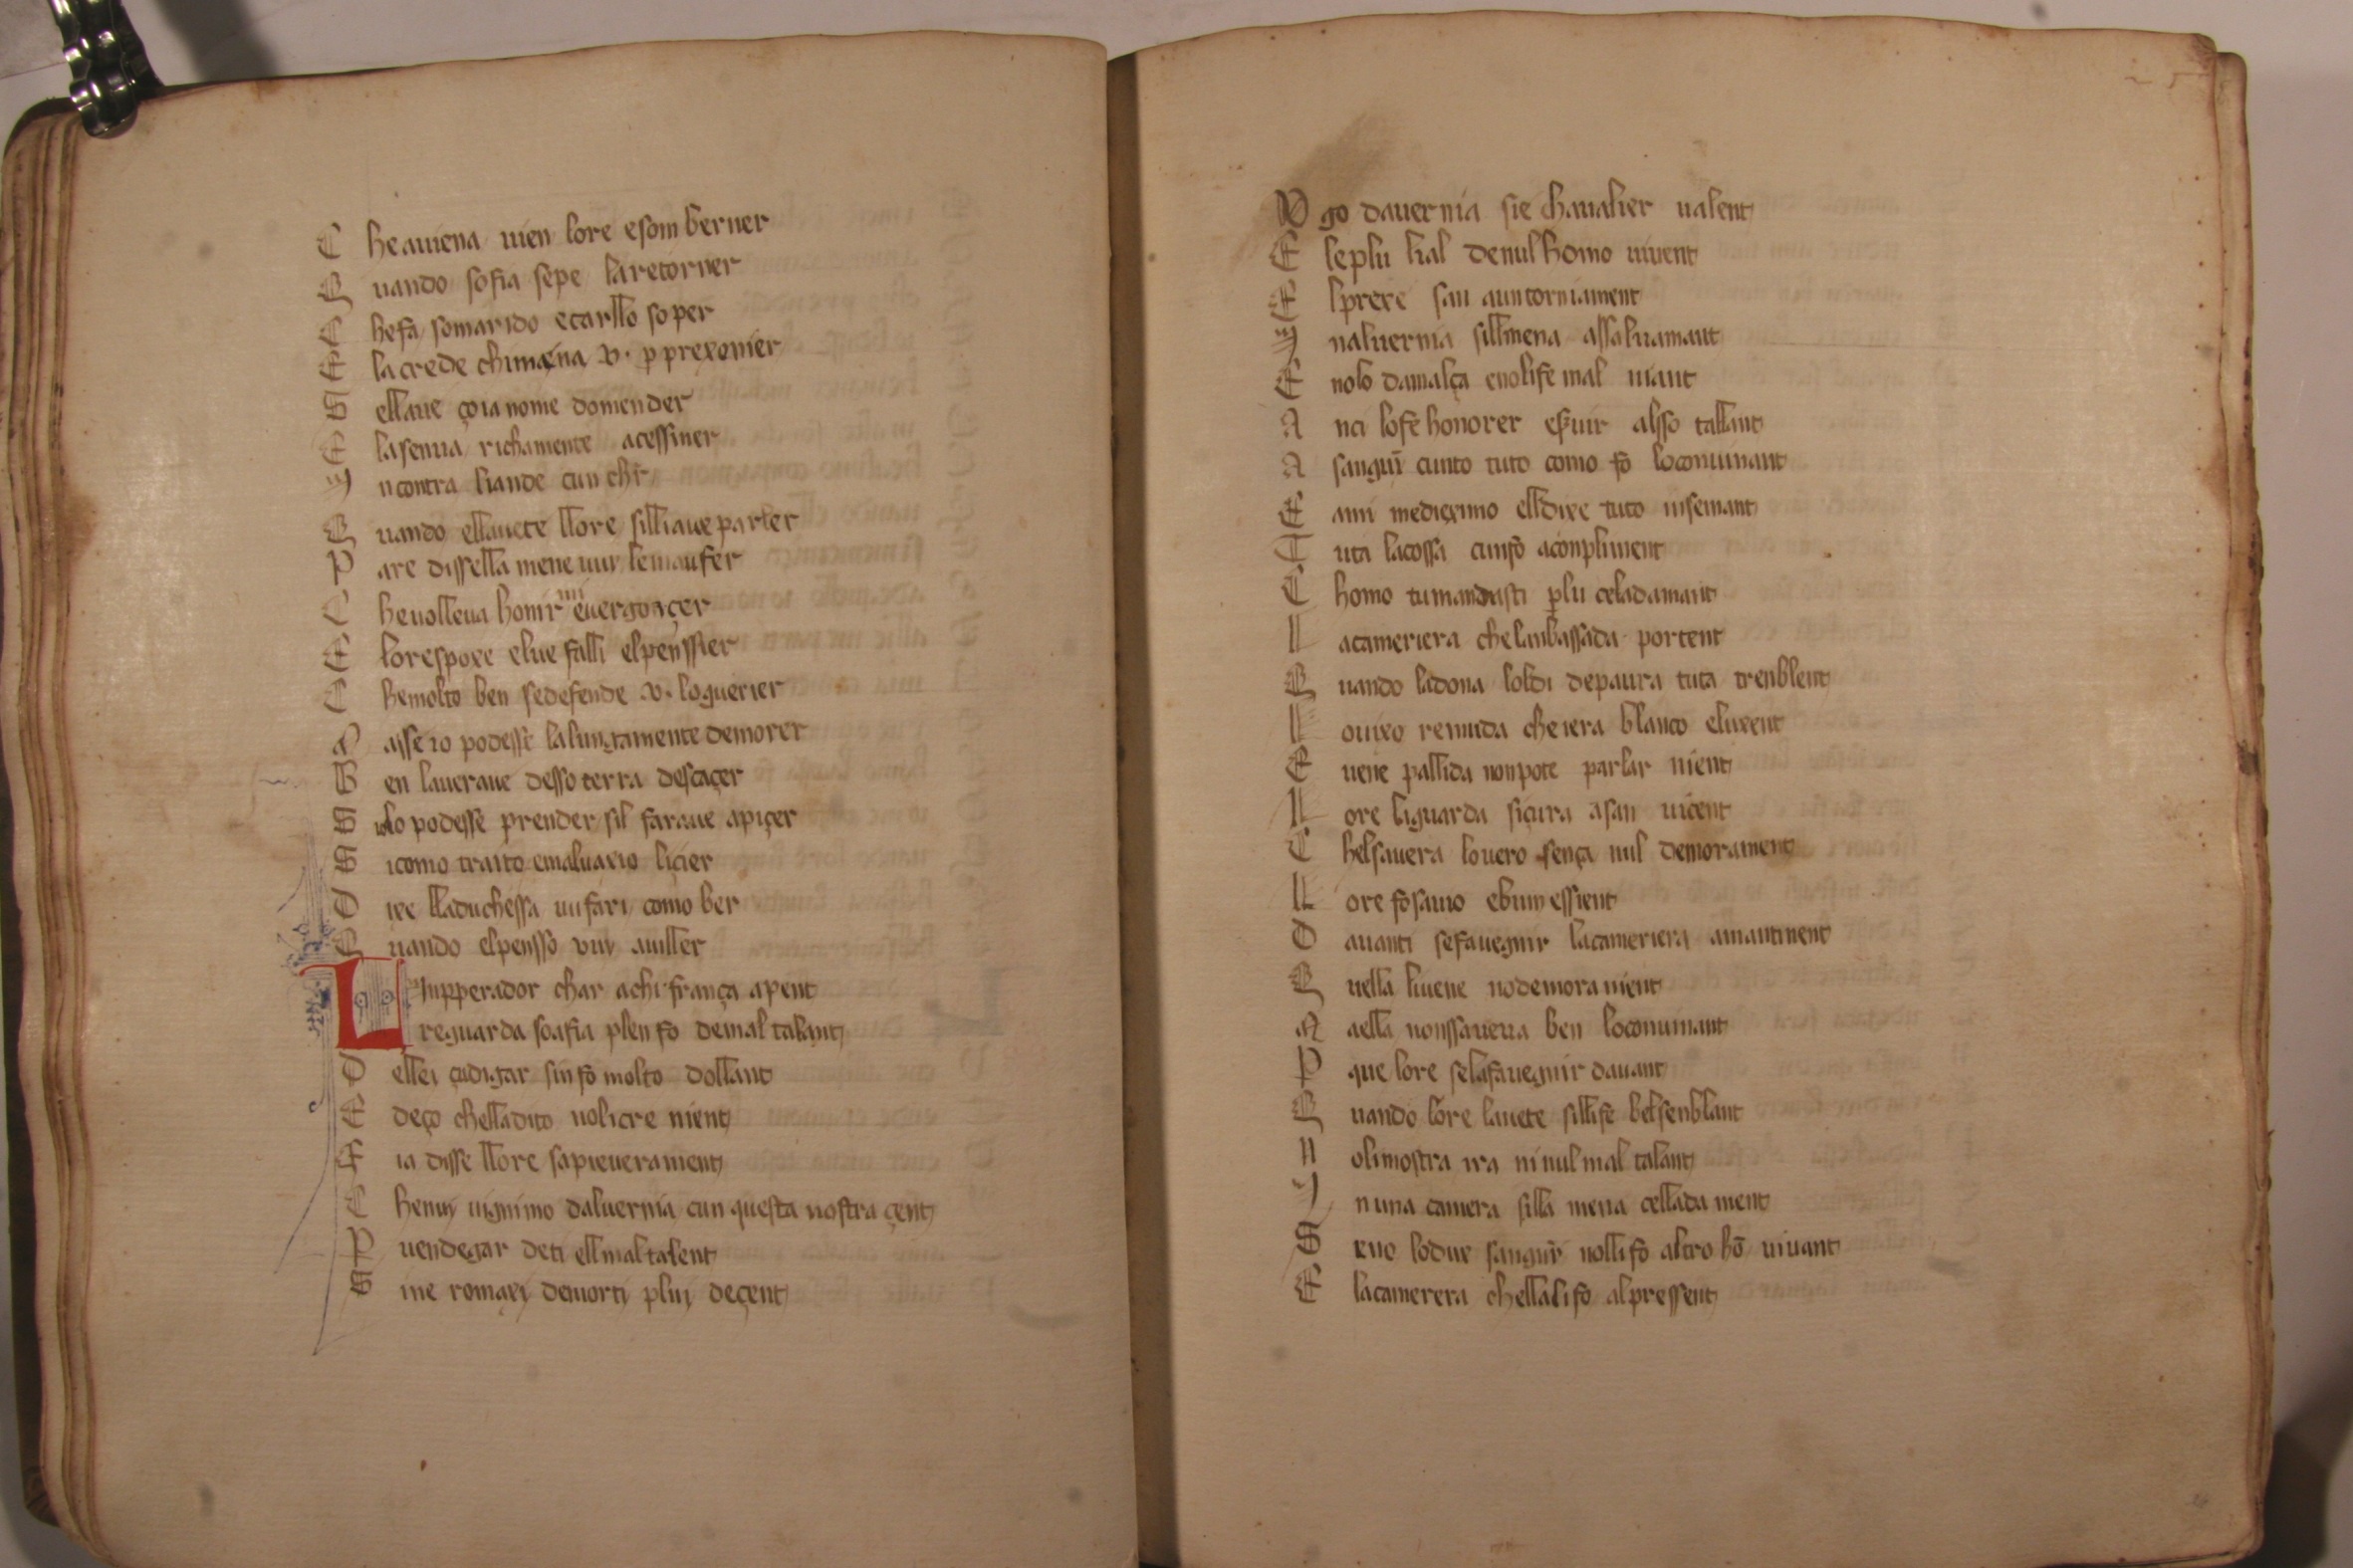 C he auiena uien lore esom berner
Q uando sofia sepe laretorner
C hefa somarido ecarllo soper
E la crede chimena .v. p prexonier
S ellaue çoia nome domender
E lasenua richamente acessiner
I ncontra liande cun chr
Q uando ellauete llore silliaue parler
P are dissella mene uuy lemaufer
C he uolleua honir euergonçer
E lorespoxe elue falli elpenssier
C hemolto ben sedefende .v. loguerier
M asse io podesse lalungtamente demorer
B en laueraue desso terra descaçer
S lo podesse prender sil faraue apiçer
S icomo traito emaluaxio liçier
D ixe lladuchessa uufari como ber
Q uando elpensso vuy auiller
L Inpperador char achi frança apent
reguarda soafia plen fo demal talant
D ellei çudigar sin fo molto dollant
E deço chelladito uolicre nient
F ia disse llore sapieuerament
C henuy uignimo daluernia cun questa nostra çent
P uendegar deti ellmaltalent
S ine romaxi demorti pluy deçent
V go dauernia sie chaualier ualent
E leplu lial denul homo uiuent
E lprexe san auntorniament
I naluernia sillmena assaluamant
E nolo damalça enolife mal niant
A nci lofe honorer eseruir alsso tallant
A sanguin cunto tuto como fo loconuinant
E ami medigximo elldixe tuto insemant
T uta lacossa cunfo aconpliment
C homo tumandasti plu celadamant
L acameriera chelanbassada portent
Q uando ladona loldi depaura tuta trenblent
L ouixo remuda cheiera blanco eluxent
E uene pallida nonpote parlar nient
L ore liguarda siçura asan uicent
C helsauera louero sença nul demorament
L ore fo sauio ebuin essient
D auanti sefauegnir lacameriera amantinent
Q uella liuene no demora nient
M aella nonssaueua ben loconuinant
P que lore selafauegnir dauant
Q uando lore lauete sillife belsenblant
N olimostra ira ni nul mal talant
I n una camera silla mena cellada ment
S eno lodue sanguin nollifo altro ho uiuant
E lacamerera chellalifo alpressent